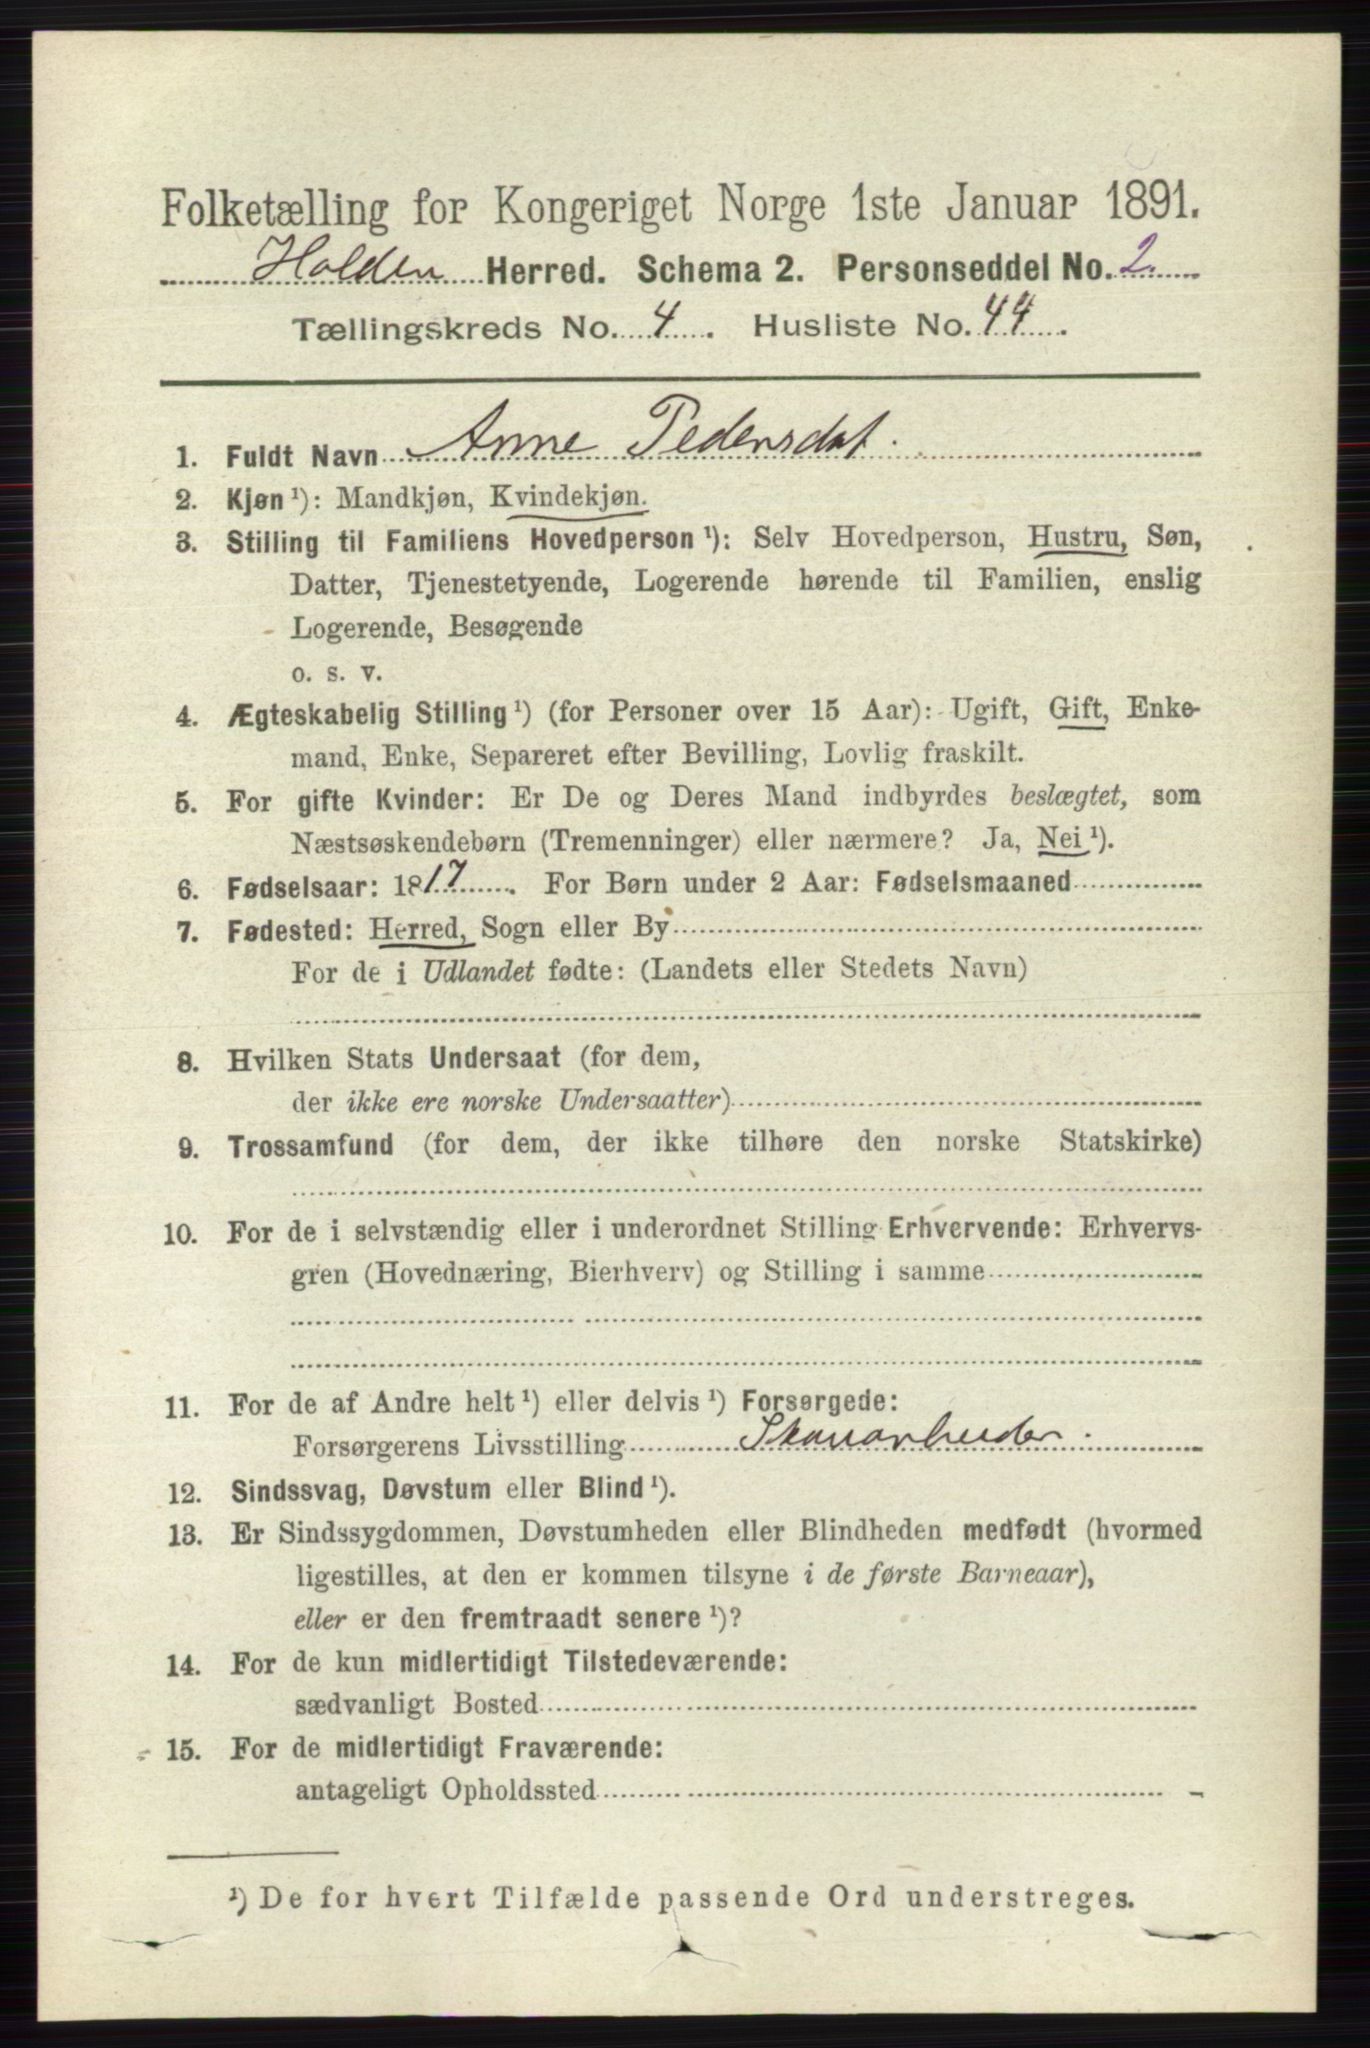 Folketælling for Kongeriget Norge 1ste Januar 1891.
Holden Herred. Schema 2. Personseddel No. 2.
Tællingskreds No. 4. Husliste No. 44.
1. Fuldt Navn Anne Pedersdat.
2. Kjøn ¹): Mandkjøn, Kvindekjøn.
3. Stilling til Familiens Hovedperson ¹): Selv Hovedperson, Hustru, Søn,
Datter, Tjenestetyende, Logerende hørende til Familien, enslig
Logerende, Besøgende
o. s. v.
4. Ægteskabelig Stilling ¹) (for Personer over 15 Aar): Ugift, Gift, Enke-
mand, Enke, Separeret efter Bevilling, Lovlig fraskilt.
5. For gifte Kvinder: Er De og Deres Mand indbyrdes beslægtet, som
Næstsøskendebørn (Tremenninger) eller nærmere? Ja, Nei ¹).
6. Fødselsaar: 1817. For Børn under 2 Aar: Fødselsmaaned
7. Fødested: Herred, Sogn eller By
For de i Udlandet fødte: (Landets eller Stedets Navn)
8. Hvilken Stats Undersaat (for dem,
der ikke ere norske Undersaatter)
9. Trossamfund (for dem, der ikke tilhøre den norske Statskirke)
10. For de i selvstændig eller i underordnet Stilling Erhvervende: Erhvervs-
gren (Hovednæring, Bierhverv) og Stilling i samme
11. For de af Andre helt ¹) eller delvis ¹) Forsørgede:
Forsørgerens Livsstilling Skovarbeider.
12. Sindssvag, Døvstum eller Blind ¹).
13. Er Sindssygdommen, Døvstumheden eller Blindheden medfødt (hvormed
ligestilles, at den er kommen tilsyne i de første Barneaar),
eller er den fremtraadt senere ¹)?
14. For de kun midlertidigt Tilstedeværende:
sædvanligt Bosted
15. For de midlertidigt Fraværende:
antageligt Opholdssted
¹) De for hvert Tilfælde passende Ord understreges.